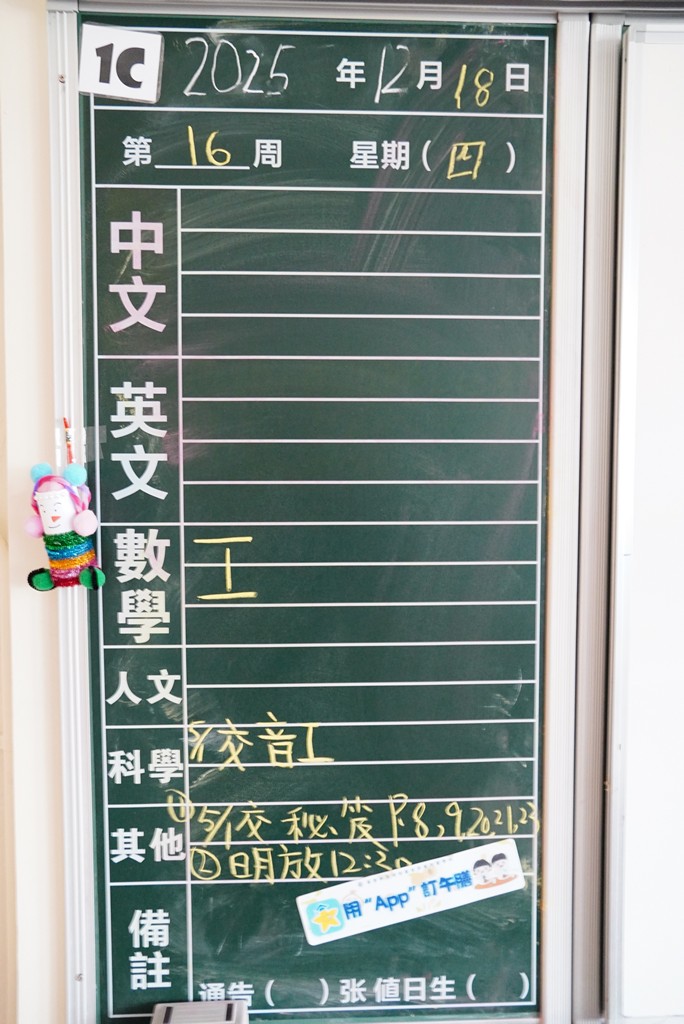 1C 2025 年 12 月 18 日
第 16 周 星期 ( 四 )
中文
英文
數學 工
人文
科學 5/1交 音工
其他 ① 5/1交 秘 P.8,9,20,21,23
② 明放12:30
用“App”訂午膳
備註
通告 ( ) 张 值日生 ( )